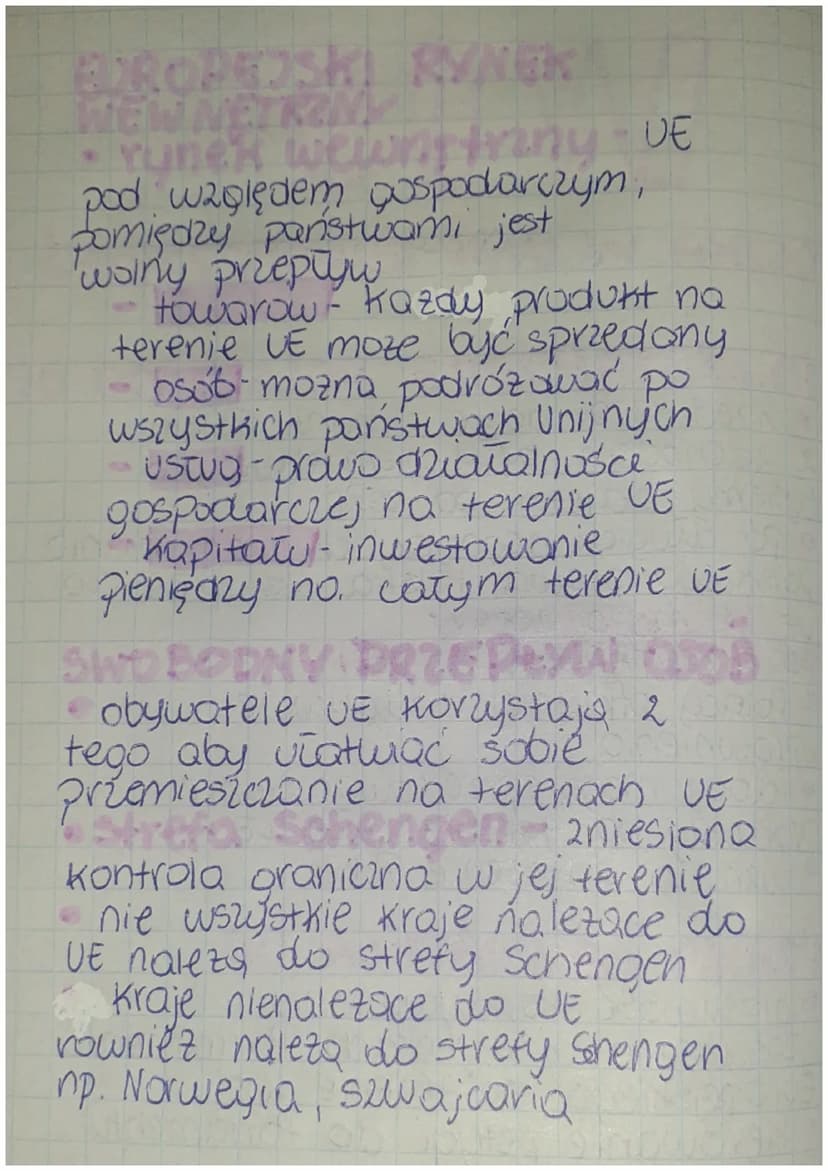 EUROPEJSKI RYNEK
WEWNĘTRZNY
• rynek wewnętrzny - UE
pod względem gospodarczym,
pomiędzy państwami jest
wolny przepływ
- towarów - każdy produkt na
terenie UE może być sprzedany
- osób - można podróżować po
wszystkich państwach Unijnych
- usług - prawo działalności
gospodarczej na terenie UE
- kapitału - inwestowanie
pieniędzy na całym terenie UE
SWOBODNY PRZEPŁYW OSÓB
• obywatele UE korzystają z
tego aby ułatwiać sobie
przemieszczanie na terenach UE
• strefa Schengen - zniesiona
kontrola graniczna w jej terenie
• nie wszystkie kraje należące do
UE należą do strefy Schengen
kraje nienależące do UE
również należą do strefy Shengen
np. Norwegia, Szwajcaria